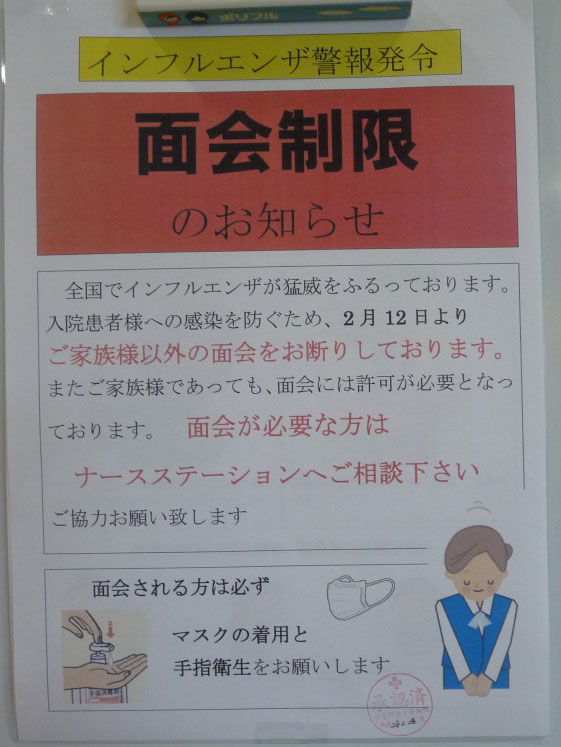 ポリフル
インフルエンザ警報発令
面会制限
のお知らせ
全国でインフルエンザが猛威をふるっております。
入院患者様への感染を防ぐため、2月12日より
ご家族様以外の面会をお断りしております。
またご家族様であっても、面会には許可が必要となっ
ております。 面会が必要な方は
ナースステーションへご相談下さい
ご協力お願い致します
面会される方は必ず
マスクの着用と
手指衛生をお願いします
承認済